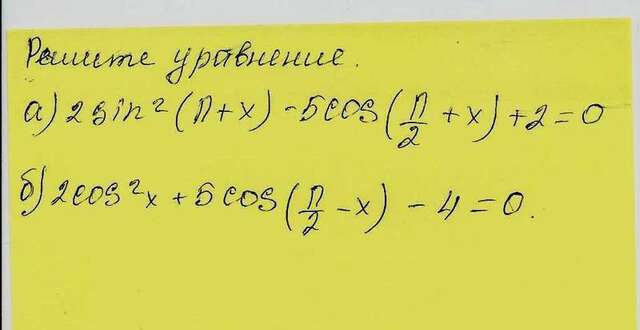 Решите уравнение.
а) 2 sin² (π + x) - 5 cos (π/2 + x) + 2 = 0
б) 2 cos² x + 5 cos (π/2 - x) - 4 = 0.